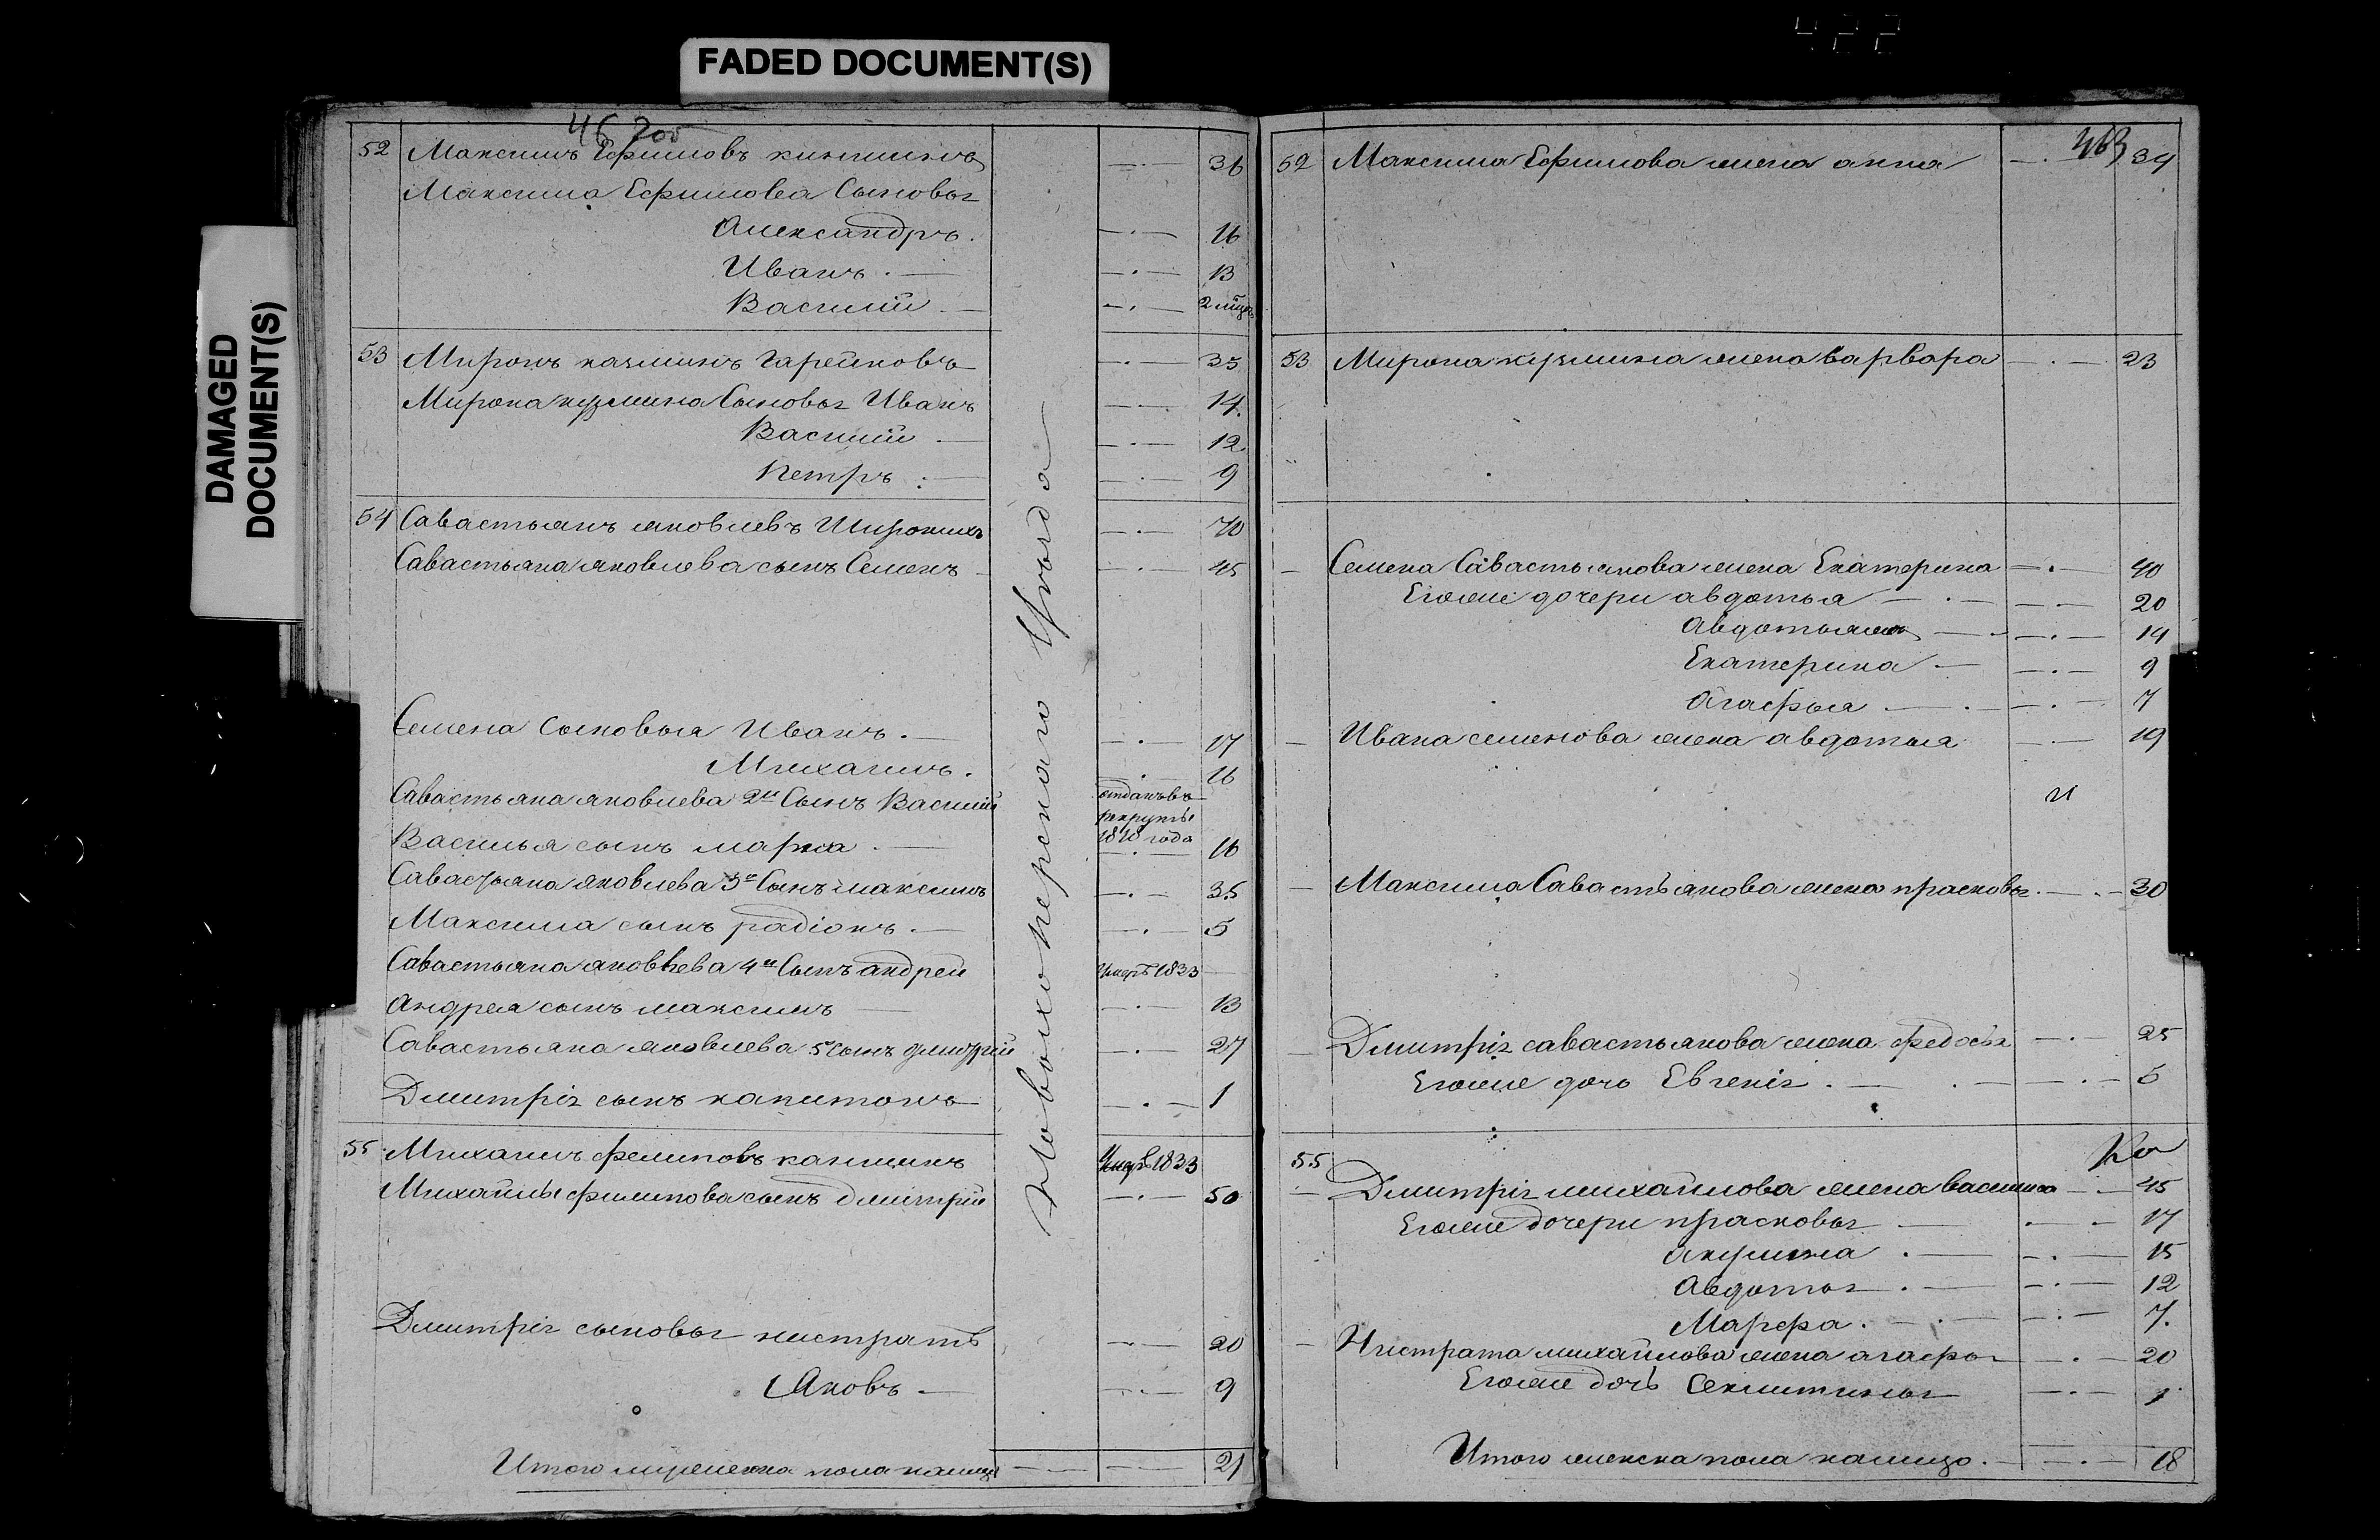 422
FADED DOCUMENT(S)
DAMAGED
DOCUMENT(S)
52 Максимъ Ефимовъ 36
Максима Ефимова Сыновья
Александръ. 16
Иванъ. 13
Василий 2 мѣсяц.
53 Миронъ казминъ Гарейновъ 35
Мирона кузмина Сыновья Иванъ 14.
Василий 12
Петръ 9
54 Савастьянъ яковлевъ Широкихъ 70
Савастьяна яковлева сынъ Семенъ 45
Семена Сыновья Иванъ. 17
Михаилъ. 16
Савастьяна яковлева 2й Сынъ Василий отданъ въ
рекруты
1818 года
Василья сынъ марка 16
Савастьяна яковлева 3й Сынъ максимъ 35
Максима сынъ радіонъ. 5
Савастьяна яковлева 4й Сынъ андрей умеръ 1833
Андрея сынъ максимъ 13
Савастьяна яковлева 5й сынъ дмитрій 27
Дмитрія сынъ капитонъ 1
55 Михаилъ филиповъ умеръ 1833
Михайлы филипова сынъ дмитрій 50
Дмитрія сыновья нистратъ 20
Яковъ 9
Итого мужеска пола налицо 21
Новохоперскаго уѣзда
463
52 Максима Ефимова жена анна 34
53 Мирона кузмина жена варвара 23
Семена Савастьянова жена Екатерина 40
Егоже дочери авдотья 20
Авдотьяже 14
Екатерина 9
Агафья 7
Ивана семенова жена авдотья 19
Максима Савастьянова жена прасковья 30
Дмитрія савастьянова жена федосья 25
Егоже дочь Евгенія. 5
55
Дмитрія михайлова жена василиса 45
Егоже дочери прасковья 17
акулина 15
Авдотья 12
Марфа. 7.
Нистрата михайлова жена агафья 20
Егоже дочь Секлитинья 1
Итого женска пола налицо. 18